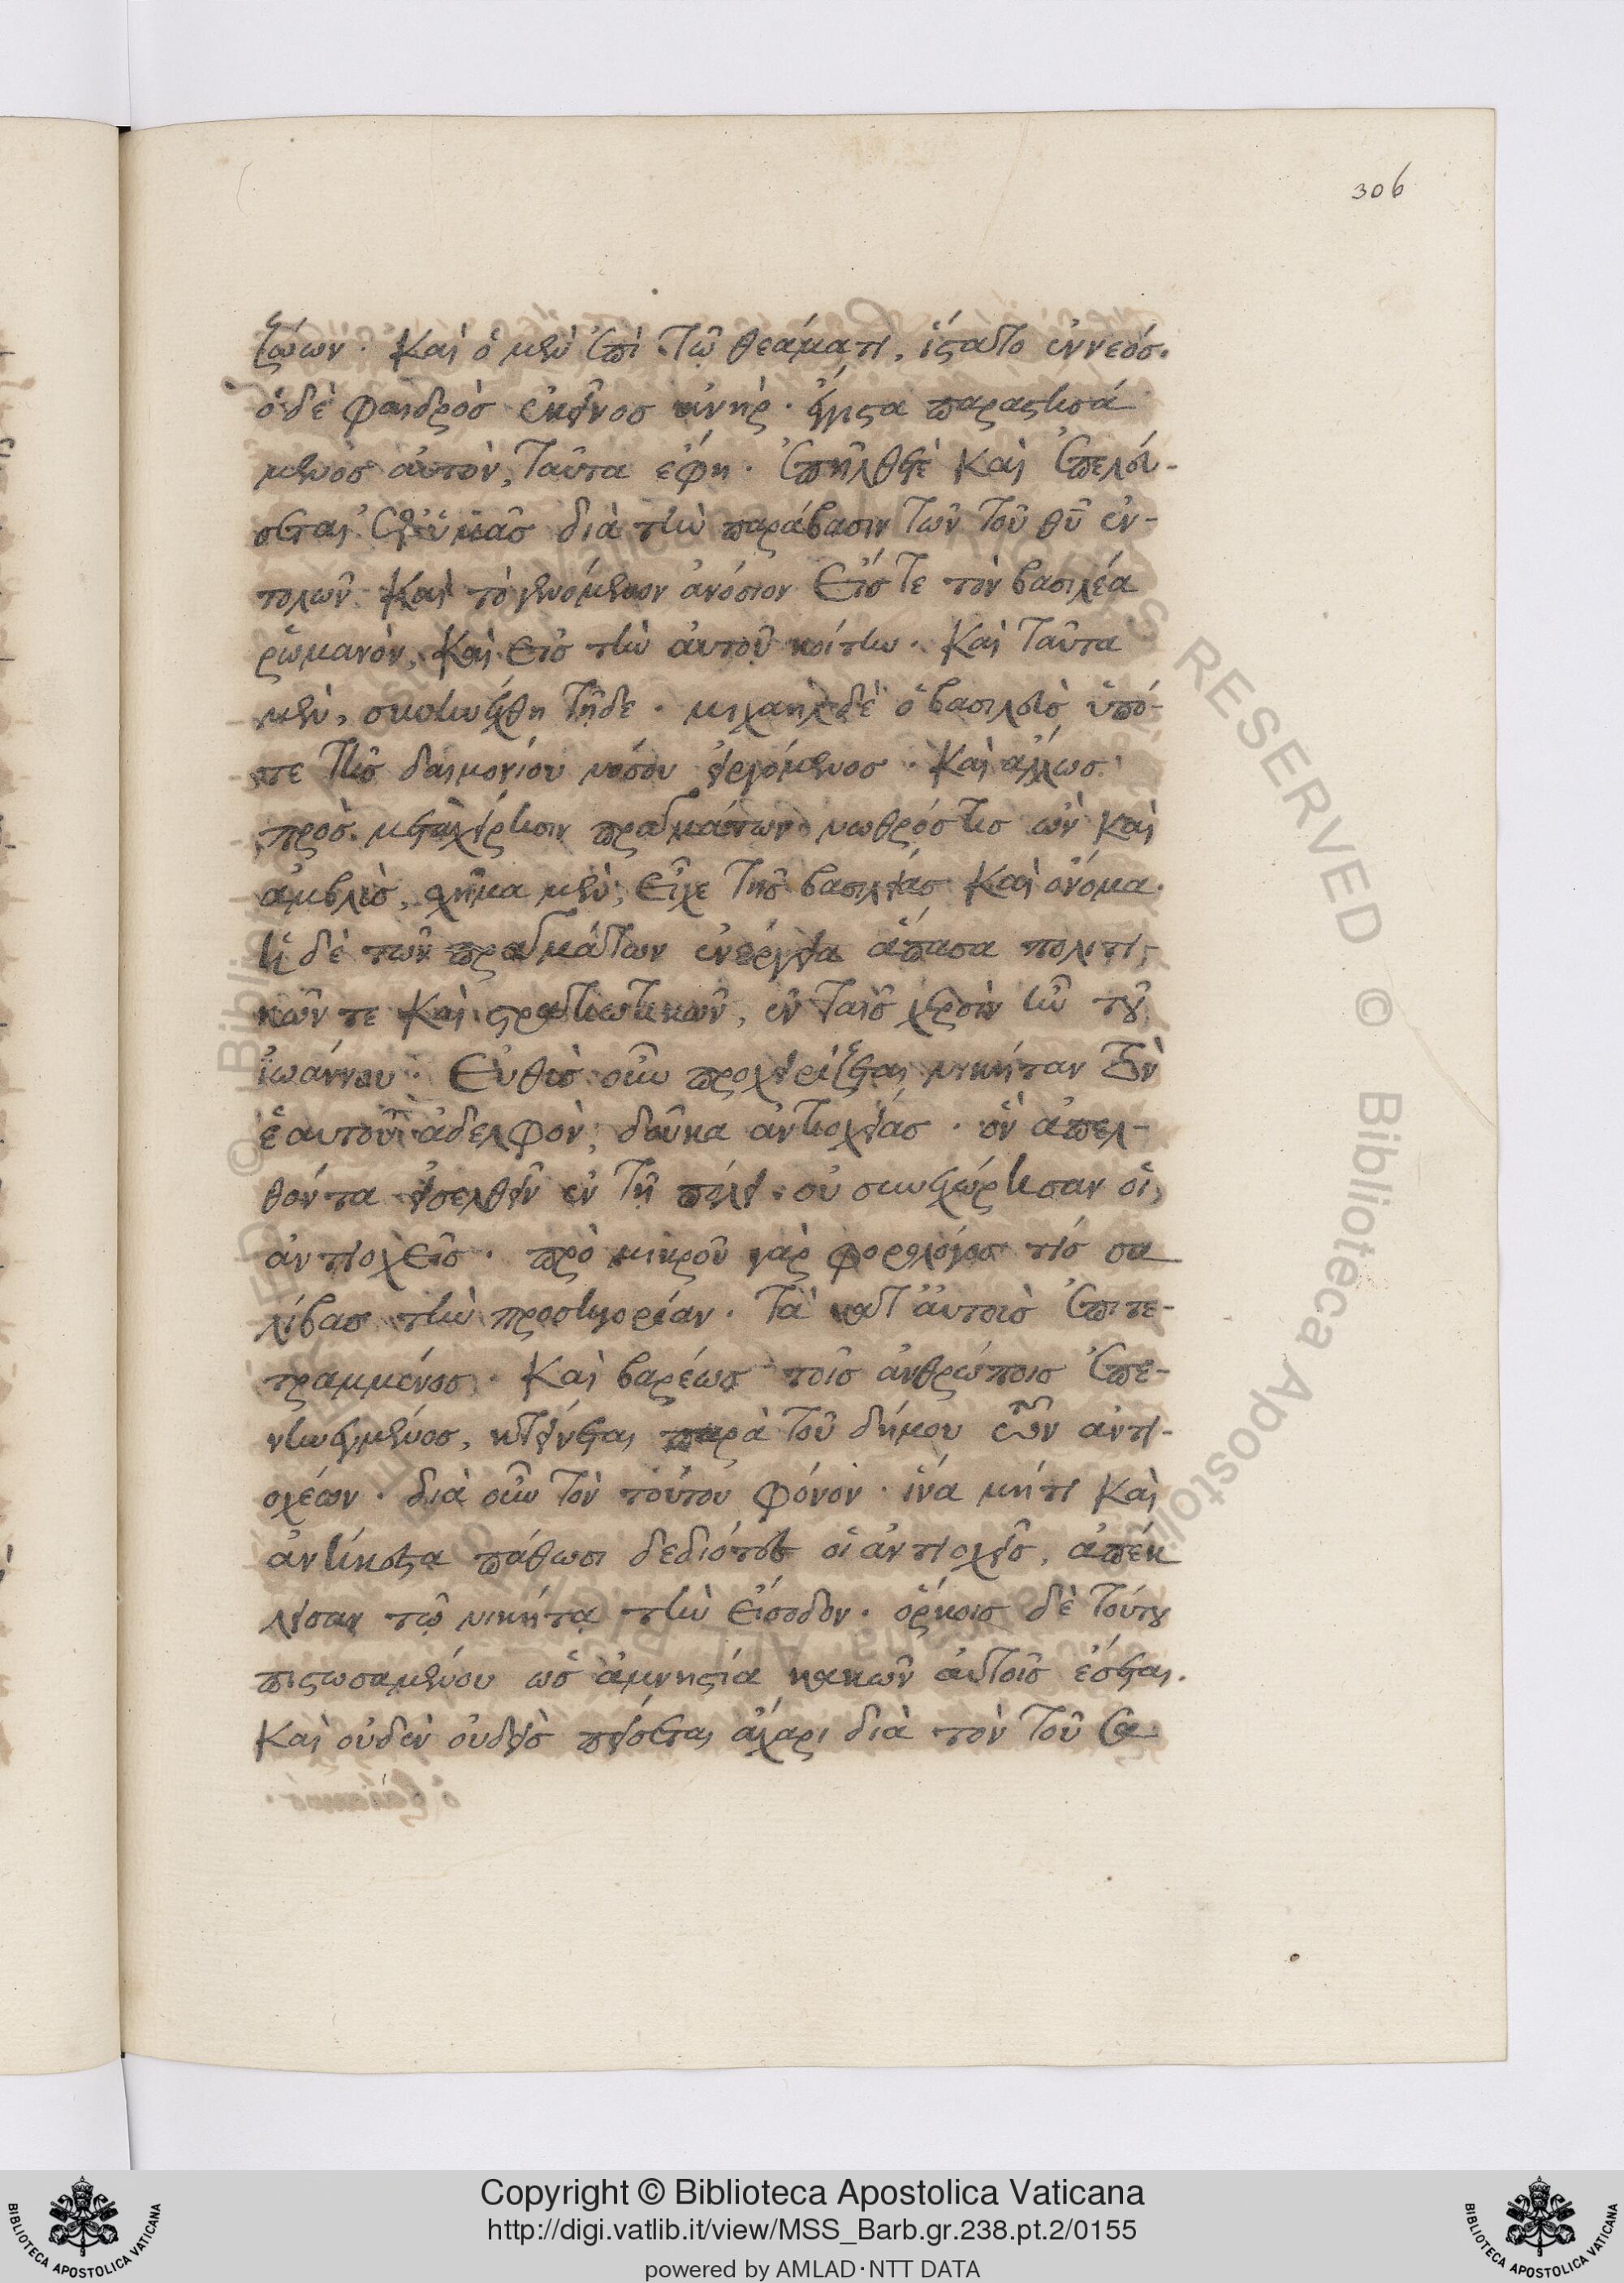 306
ζώων. καὶ ὁ μὲν ἐπὶ τῷ θεάματι, ἵστατο ἐννεός.
ὁ δὲ φαιδρὸς ἐκεῖνος ἀνὴρ. ἔγγιστα παραστησά
μενος αὐτὸν, ταῦτα ἔφη. ἐπῆλθε καὶ ἐπελεύ-
σεται ἐφ' ὑμᾶς διὰ τὴν παράβασιν τῶν τοῦ θῦ ἐν-
τολῶν. καὶ τὸ γενόμενον ἀνόσιον εἴς τε τὸν βασιλέα
ῥωμανὸν, καὶ εἰς τὴν αὐτοῦ κοίτην. καὶ ταῦτα
μὲν, συνηνέχθη τῇδε. μιχαὴλ δὲ ὁ βασιλεὺς ὑπό-
τε τῆς δαιμονίου νόσου εἰργόμενος. καὶ ἄλλως
πρὸς μεταχείρησιν πραγμάτων νωθρός τις ὢν καὶ
ἀμβλὺς, σχῆμα μὲν, εἶχε τῆς βασιλείας καὶ ὄνομα.
ἡ δὲ τῶν πραγμάτων ἐνέργεια ἅπασα πολιτι-
κῶν τε καὶ στρατιωτικῶν, ἐν ταῖς χερσὶν ἦν τοῦ
ἰωάννου. Εὐθὺς οὖν προχειρίζεται νικήταν τὸν
ἑαυτοῦ ἀδελφὸν, δοῦκα ἀντιοχείας. ὃν ἀπελ-
θόντα εἰσελθεῖν ἐν τῇ πόλει. οὐ συνεχώρησαν οἱ
ἀντιοχεῖς. πρὸ μικροῦ γὰρ φορολόγος τίς σα
λίβας τὴν προσηγορίαν. τὰ κατ' αὐτοὺς ἐπιτε-
τραμμένος. καὶ βαρέως τοῖς ἀνθρώποις ἐπε-
νηνεγμένος, κτείνεται παρὰ τοῦ δήμου τῶν ἀντι-
οχέων. διὰ οὖν τὸν τούτου φόνον. ἵνα μήτι καὶ
ἀνήκεστα πάθωσι δεδιότες οἱ ἀντιοχεῖς, ἀπέκ
λεισαν τῷ νικήτᾳ τὴν εἴσοδον. ὅρκοις δὲ τούτου
πιστωσαμένου ὡς ἀμνηστία κακῶν αὐτοῖς ἔσται.
καὶ οὐδὲν οὐδεὶς πείσεται ἄχαρι διὰ τὸν τοῦ σα
Copyright © Biblioteca Apostolica Vaticana
http://digi.vatlib.it/view/MSS_Barb.gr.238.pt.2/0155
powered by AMLAD·NTT DATA
BIBLIOTECA APOSTOLICA VATICANA
BIBLIOTECA APOSTOLICA VATICANA